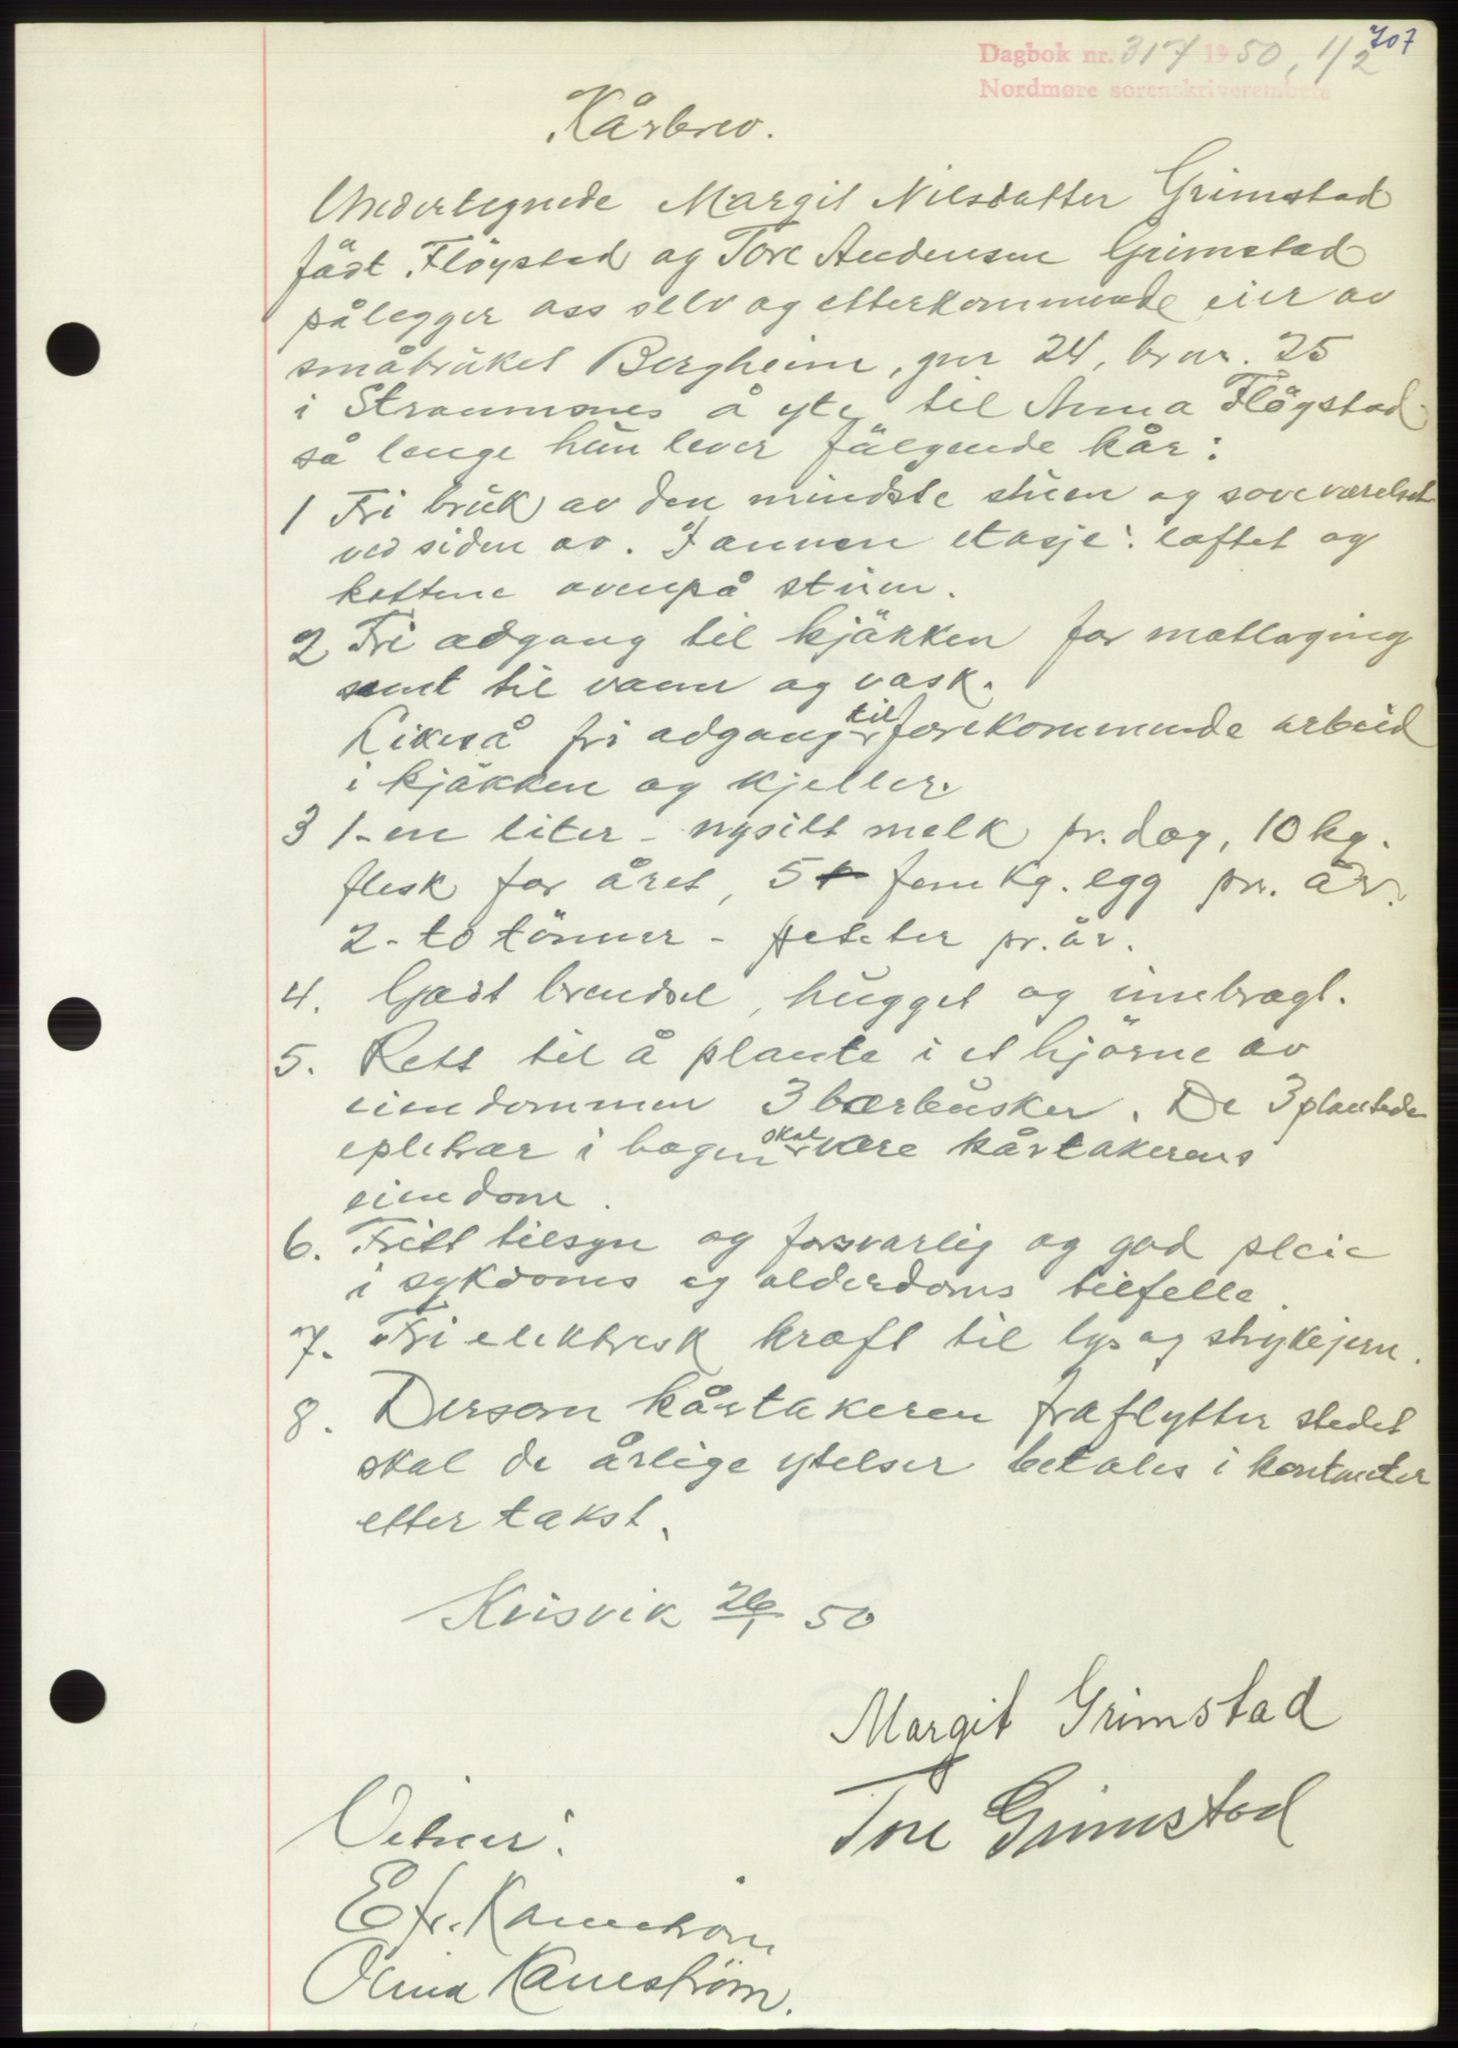 707
Dagbok nr. 317 1950, 1/2
Nordmøre sorenskriverembete
Kårbrev.
Undertegnede Margit Nilsdatter Grimstad
fädt Flöystad og Tore Andersen Grimstad
pålegger oss selv og etterkommende eier av
småbruket Bergheim, gnr 24, br nr. 25
i Straumsnes å yte til Anna Flögstad
så lenge hun lever fälgende kår:
1 Fri bruk av den mindste stuen og soveværelset
ved siden av. I annen etasje: loftet og
kottene ovenpå stuen.
2 Fri adgang til kjäkken for matlaging
samt til vann og vask.
Likeså fri adgang til forekommende arbeid
i kjäkken og kjeller.
3 1-en liter - nysilt melk pr. dag, 10 kg.
flesk for året, 5 fem kg. egg pr. år.
2 - to tönner - poteter pr. år.
4. Godt brendsel, hugget og innebragt.
5. Rett til å plante i et hjörne av
eiendommen 3 bærbusker. De 3 plantede
epletrær i hagen skal være kårtakerens
eiendom.
6. Fritt tilsyn og forsvarlig og god pleie
i sykdoms og alderdoms tilfelle.
7. Fri elektrisk kraft til lys og strykejern.
8. Dersom kårtakeren fraflytter stedet
skal de årlige ytelser betales i kontanter
etter takst.
Kvisvik 26/1 50
Margit Grimstad
Tore Grimstad
Vitner:
E fr. Kanestrøm
Olina Kanestrøm.